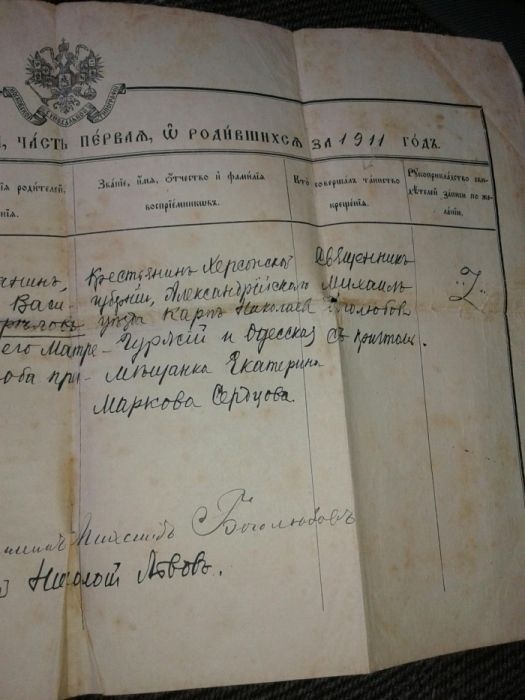 , ЧАСТЬ ПЕРВАЯ, Ѿ РОДИВШИХСЯ ЗА 1911 ГОДЪ.
родителей,
Званїе, имя, Отчество и фамилїя воспрїемникшвъ.
Кто совершалъ таинство крещенїя.
Рукоприкладство свидѣтелей записи по желанїи.
Крестьянинъ Херсонской
губернїи, Александрїйскаго
уѣзда Карпъ Николаевъ
и Одесская
Мѣщанка Екатерина
Маркова Сердцова.
Священникъ
Михаилъ
Боголюбовъ
съ причтомъ.
его Матре-
оба при-
Боголюбовъ
Николай Львовъ.